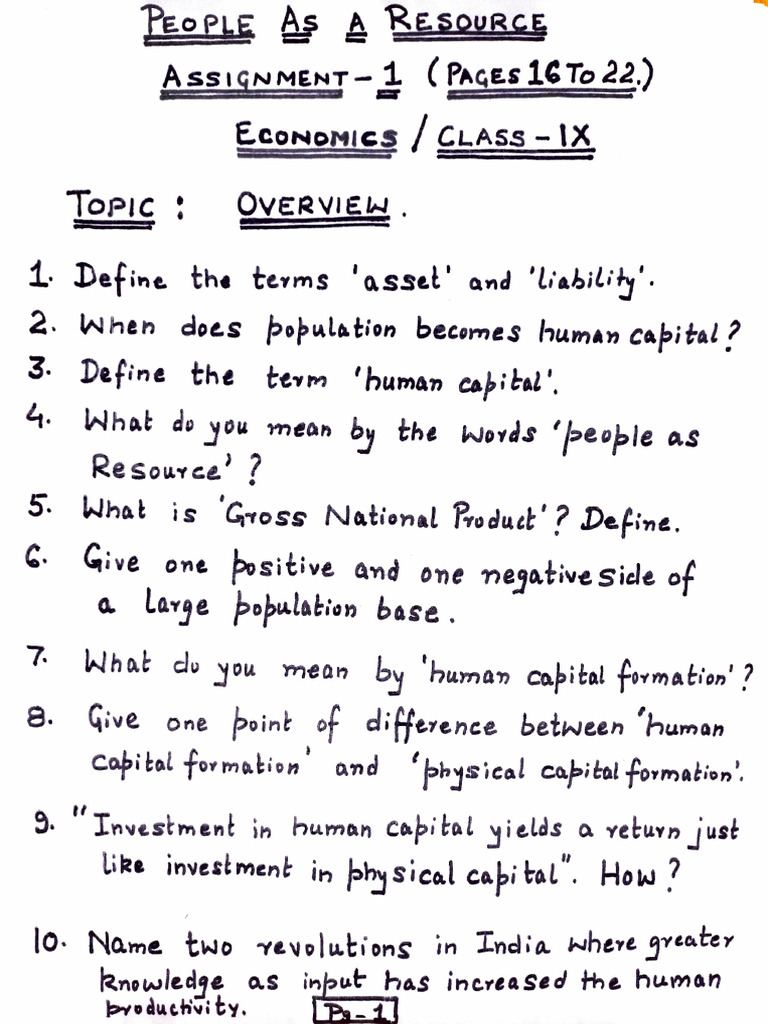 PEOPLE AS A RESOURCE
ASSIGNMENT-1 (PAGES 16 TO 22.)
ECONOMICS / CLASS-IX
TOPIC : OVERVIEW.
1. Define the terms 'asset' and 'liability'.
2. When does population becomes human capital?
3. Define the term 'human capital'.
4. What do you mean by the words 'people as
Resource'?
5. What is 'Gross National Product'? Define.
6. Give one positive and one negative side of
a large population base.
7. What do you mean by 'human capital formation'?
8. Give one point of difference between 'human
capital formation' and 'physical capital formation'.
9. "Investment in human capital yields a return just
like investment in physical capital". How?
10. Name two revolutions in India where greater
knowledge as input has increased the human
productivity. Pg-1